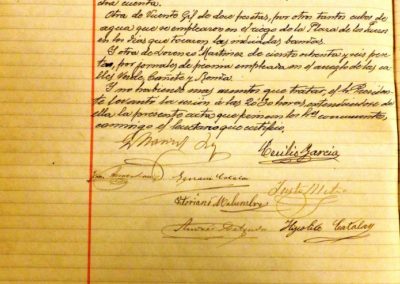 dra cuenta.
Otra de Vicente Gil de doce pesetas, por otros tantos cubos de
agua que se emplearon en el riego de la Plaza de los
en los días que
Y otra de Lorenzo Martinez de ciento ochenta y seis pese
tas, por jornales de piedra empleada en el arreglo de las ca
lles Verde, Cañete y Ronda.
Y no habiendo mas asuntos que tratar, el Sr. Presiden
te levantó la sesión a las 20'30 horas, extendiendose de
ella la presente acta que firman los Srs. concurrentes,
conmigo el Secretario que certifico.
Emilio Garcia
Ignacio Catalá
Justo
Victoriano Malumbres
Andrés Delgado
Hipolito Catalan